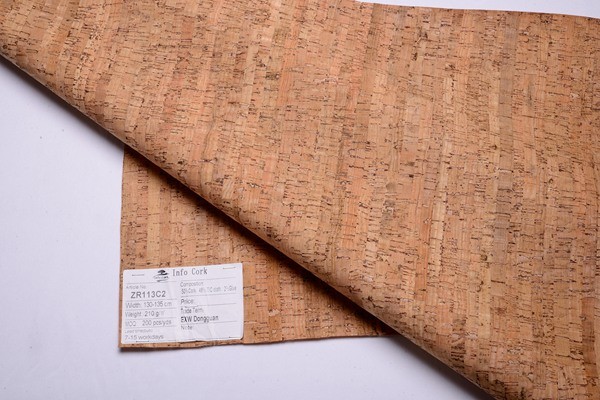 Info Cork
Article No.
ZR113C2
Width: 130-135 cm
Weight: 210 g/
MOQ: 200 pcs/yds
7-15 workdays
Composition
Price:
Trade Term:
EXW Dongguan
Note: